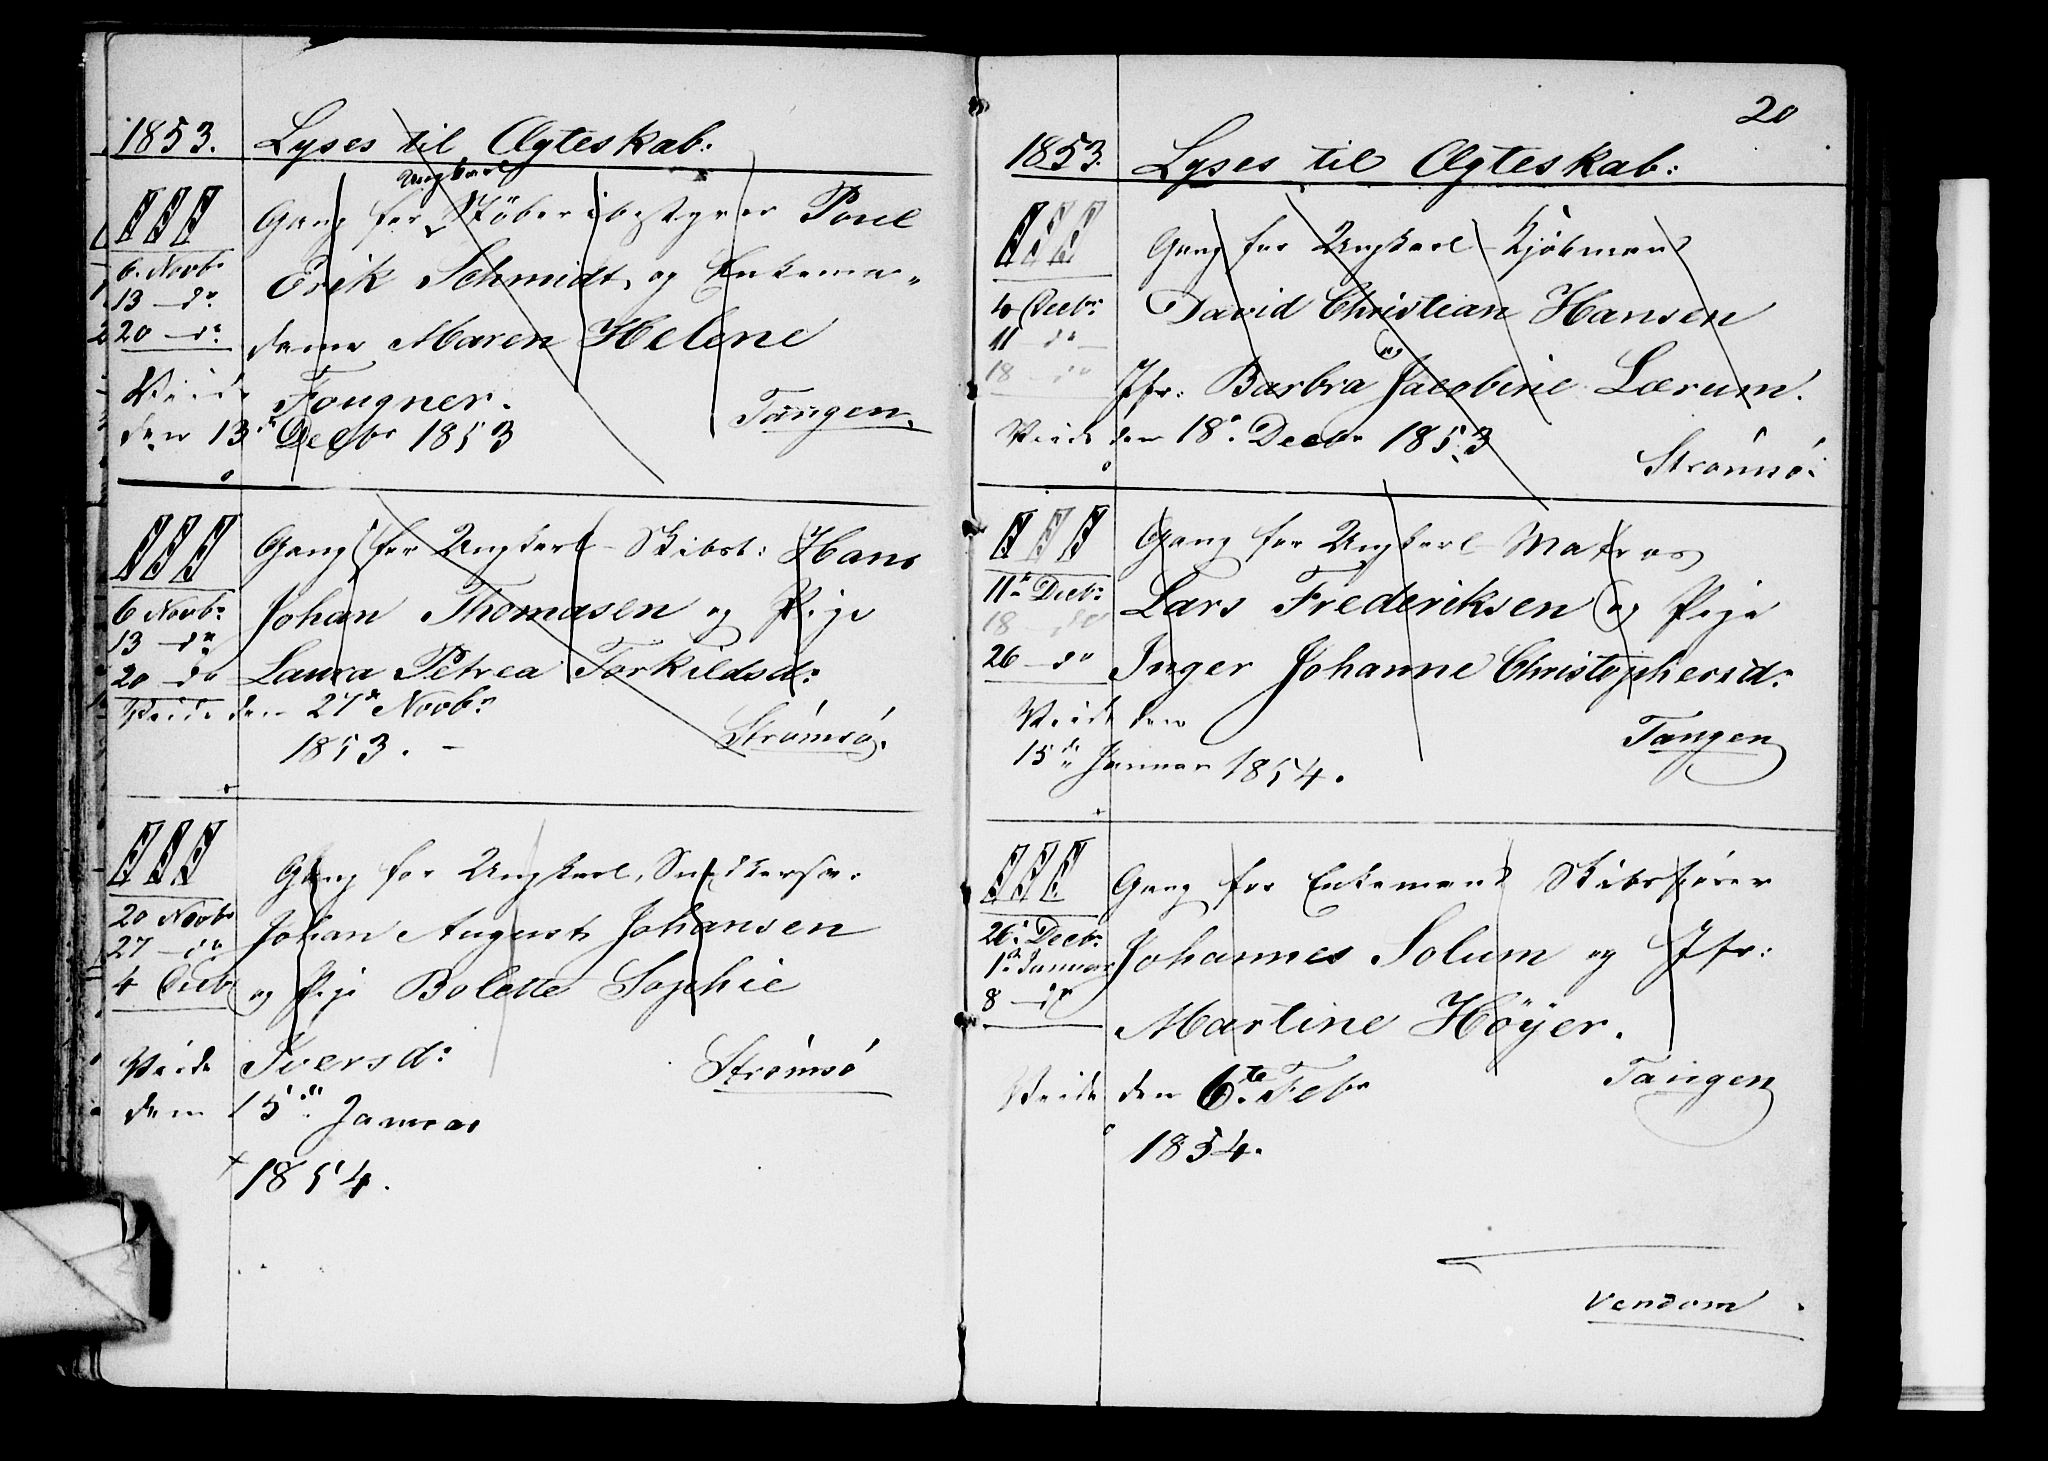 1853. Lyses til Ægteskab:
Ungkarl
III Gang for Støberibestyrer Poul
6. Novbr Erik Schmidt og Enkema-
13 – do
20 – do dame Maren Helene
Viede Fougner.
den 13de Decbr 1853 Tangen.
III Gang for Ungkarl Skibst: Hans
6 Novbr Johan Thomasen og Pige
13 – do
20 – do Laura Petrea Torkildsd:
Viede den 27de Novbr
1853. – Strømsø.
III Gang for Ungkarl, Snedkersv.
20 Novbr Johan August Johansen
27 – do
4 Decb og Pige Bolette Sophie
Viede Iversd: Strømsø
den 15de Januar
1854.
20
1853. Lyses til Ægteskab:
III Gang for Ungkarl Kjøbmand
4 Decbr David Christian Hansen
11 do og
18 – do Jfr: Barbra Jacobine Lærum.
Viede den 18de Decbr 1853
Strømsø.
III Gang for Ungkarl Matros
11te Decbr Lars Frederiksen og Pige
18 – do
26 – do Inger Johanne Christophersd:
Viede den Tangen
15de Januar 1854.
III Gang for Enkemand Skibsfører
26de Decbr Johannes Solum og Jfr:
1ste Januar
8 – do Martine Höÿer.
Viede den 6te Febr Tangen
1854.
Vendom